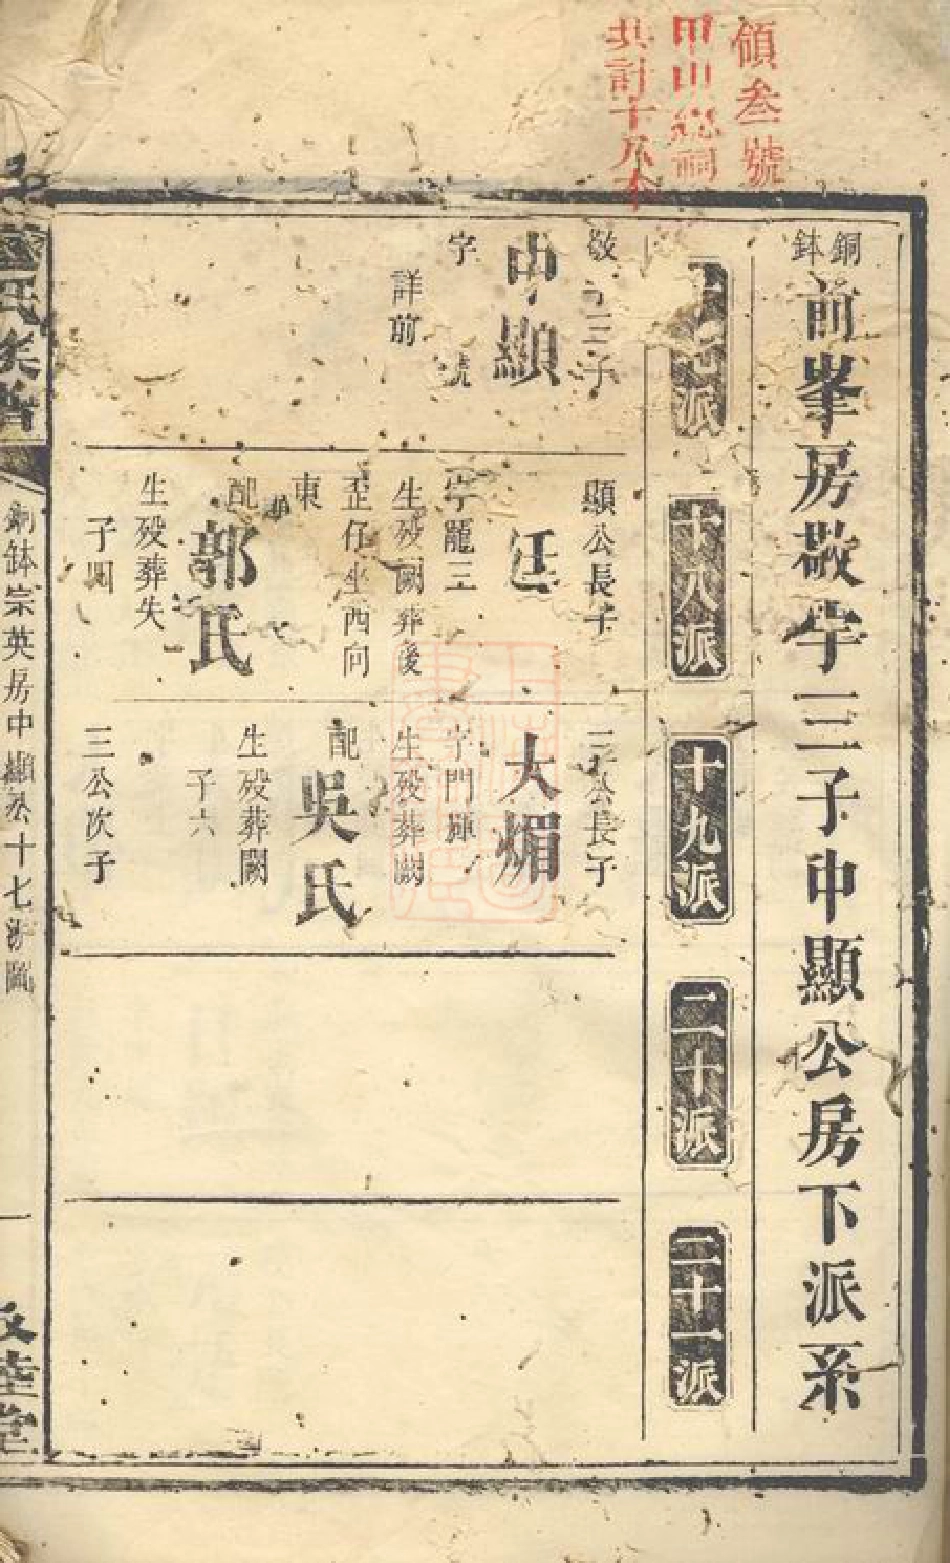 領叁號
甲山總祠
共計十八本
銅鉢
前峯房敬牛三子中顯公房下派系
十七派
十八派
十九派
二十派
二十一派
敬牛三子
中顯
字 號
詳前
顯公長子
廷
字龍三
生歿闕葬後
歪仔坐西向
東
配
郭氏
生歿葬失
子
三公長子
大媚
字門輝
生歿葬闕
配
吳氏
生歿葬闕
子六
三公次子
氏族譜
銅鉢宗英房中顯公十七派圖
一
敦睦堂